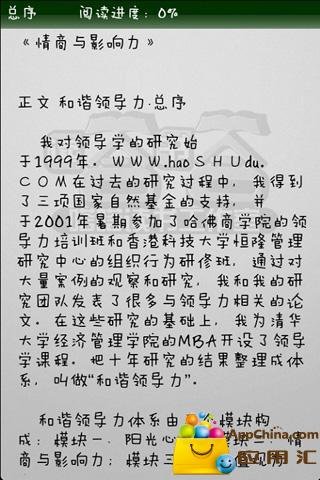 总序 阅读进度：0%
《情商与影响力》
正文 和谐领导力·总序
我对领导学的研究始
于1999年。WWW.haoSHUdu.
COM在过去的研究过程中，我得到
了三项国家自然基金的支持，并
于2001年暑期参加了哈佛商学院的领
导力培训班和香港科技大学恒隆管理
研究中心的组织行为研修班，通过对
大量案例的观察和研究，我和我的研
究团队发表了很多与领导力相关的论
文。在这些研究的基础上，我为清华
大学经济管理学院的MBA开设了领导
学课程。把十年研究的结果整理成体
系，叫做“和谐领导力”。
和谐领导力体系由 模块构
成：模块一、阳光心 二、情
商与影响力；模块三
AppChina.com
应用汇